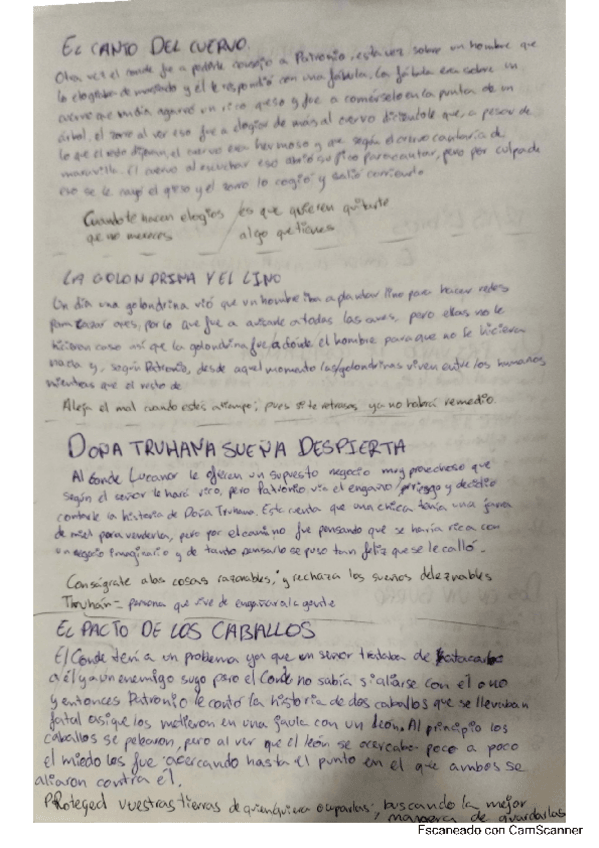 EL CANTO DEL CUERVO
Otra vez el conde fue a pedirle consejo a Patronio, esta vez sobre un hombre que
lo elogiaba demasiado y él le respondió con una fábula. La fábula era sobre un
cuervo que un día agarró un rico queso y fue a comérselo en la punta de un
árbol, el zorro al ver eso fue a elogiar de más al cuervo diciéndole que, a pesar de
lo que el resto dijeran, el cuervo era hermoso y que según él cuervo cantaría de
maravilla. El cuervo al escuchar eso abrió su pico para cantar, pero por culpa de
eso se le cayó el queso y el zorro lo cogió y salió corriendo
Cuando te hacen elogios / es que quieren quitarte
que no mereces algo que tienes
LA GOLONDRINA Y EL LINO
Un día una golondrina vió que un hombre iba a plantar lino para hacer redes
para cazar aves, por lo que fue a avisarle a todas las aves, pero ellas no le
hicieron caso así que la golondrina fue a donde el hombre para que no le hiciera
nada y, según Patronio, desde aquel momento las golondrinas viven entre los humanos
mientras que el resto de
Aleja el mal cuando estés a tiempo; pues si te retrasas ya no habrá remedio.
DOÑA TRUHANA SUEÑA DESPIERTA
Al Conde Lucanor le ofrecen un supuesto negocio muy provechoso que
según el señor le hará rico, pero Patronio, vía el engaño/riesgo y decidió
contarle la historia de Doña Truhana. Este cuenta que una chica tenía una jarra
de miel para venderla, pero por el camino fue pensando que se haría rica con
un negocio imaginario y de tanto pensarlo se puso tan feliz que se le calló.
Conságrate a las cosas razonables, y rechaza los sueños deleznables
Truhán = persona que vive de engañar a la gente
EL PACTO DE LOS CABALLOS
El Conde tenía un problema ya que un señor trataba de atacarlo
a él y a un enemigo suyo pero el Conde no sabía si aliarse con él o no
y entonces Patronio le contó la historia de dos caballos que se llevaban
fatal asique los metieron en una jaula con un león. Al principio los
caballos se pelearon, pero al ver que el león se acercaba poco a poco
el miedo los fue acercando hasta el punto en el que ambos se
aliaron contra él.
PRoteged vuestras tierras de quien quiera ocuparlas, buscando la mejor
manera de guardarlas
Escaneado con CamScanner